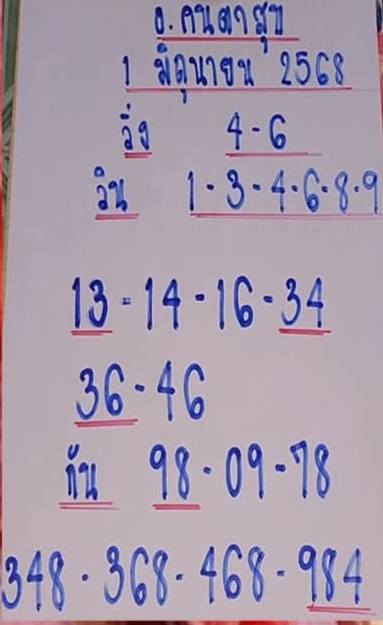 อ. คนตาสุข
1 มิถุนายน 2568
วิ่ง 4-6
วิน 1-3-4-6-8-9
13-14-16-34
36-46
กัน 98-09-78
348-368-468-984